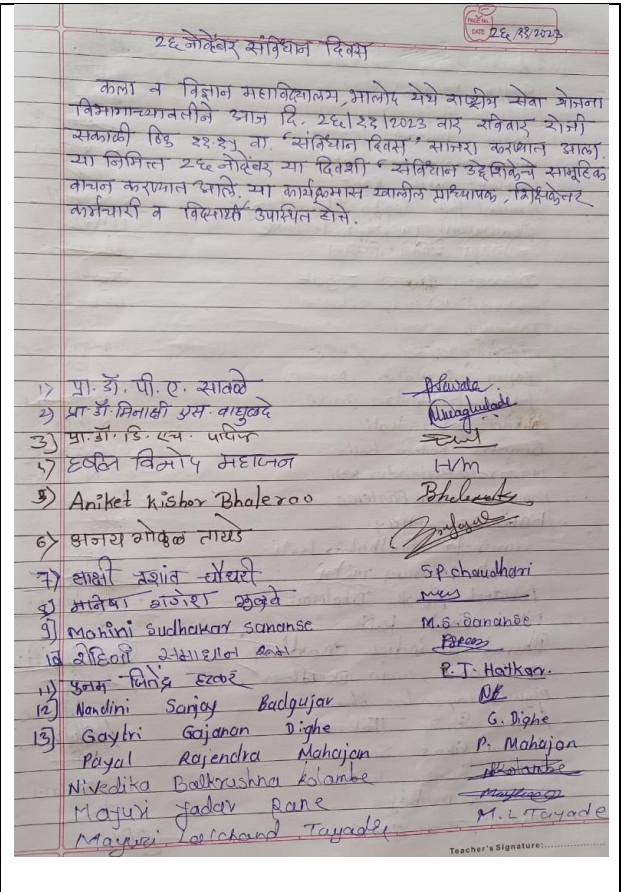 PAGE NO.
DATE २६/११/2023
२६ नोव्हेंबर संविधान दिवस
कला व विज्ञान महाविद्यालय, भालोद येथे राष्ट्रीय सेवा योजना
विभागाच्यावतीने आज दि. २६/११/२०२३ वार रविवार रोजी
सकाळी ठिक ११.१५ वा. "संविधान दिवस" साजरा करण्यात आला.
या निमित्त २६ नोव्हेंबर या दिवशी "संविधान उद्देशिकेचे सामूहिक
वाचन करण्यात आले. या कार्यक्रमास खालील प्राध्यापक, शिक्षकेत्तर
कर्मचारी व विद्यार्थी उपस्थित होते.
1) प्रा. डॉ. पी. ए. सावळे
2) प्रा. डॉ. मिनाक्षी एस. वाघुळदे
3) प्रा. डॉ. डि. एच. पाटील
4) विनोद महाजन H/m
5) Aniket Kishor Bhalerao
6) अजय गोकुळ तायडे
7) साक्षी प्रशांत चौधरी S.P. chaudhari
8) मनिषा गणेश
9) Mohini Sudhakar Sananse M.S. Sananse
10) रोहिणी समाधान
11) पुनम जितेंद्र हटकर P.J. Hatkar.
12) Nandini Sanjay Badgujar
13) Gaytri Gajanan Dighe G. Dighe
Payal Rajendra Mahajan P. Mahajan
Nivedika Balkrushna Kolambe Kolambe
Mayuri Yadav Rane
Mayuri Lalchand Tayade M.L Tayade
Teacher's Signature: